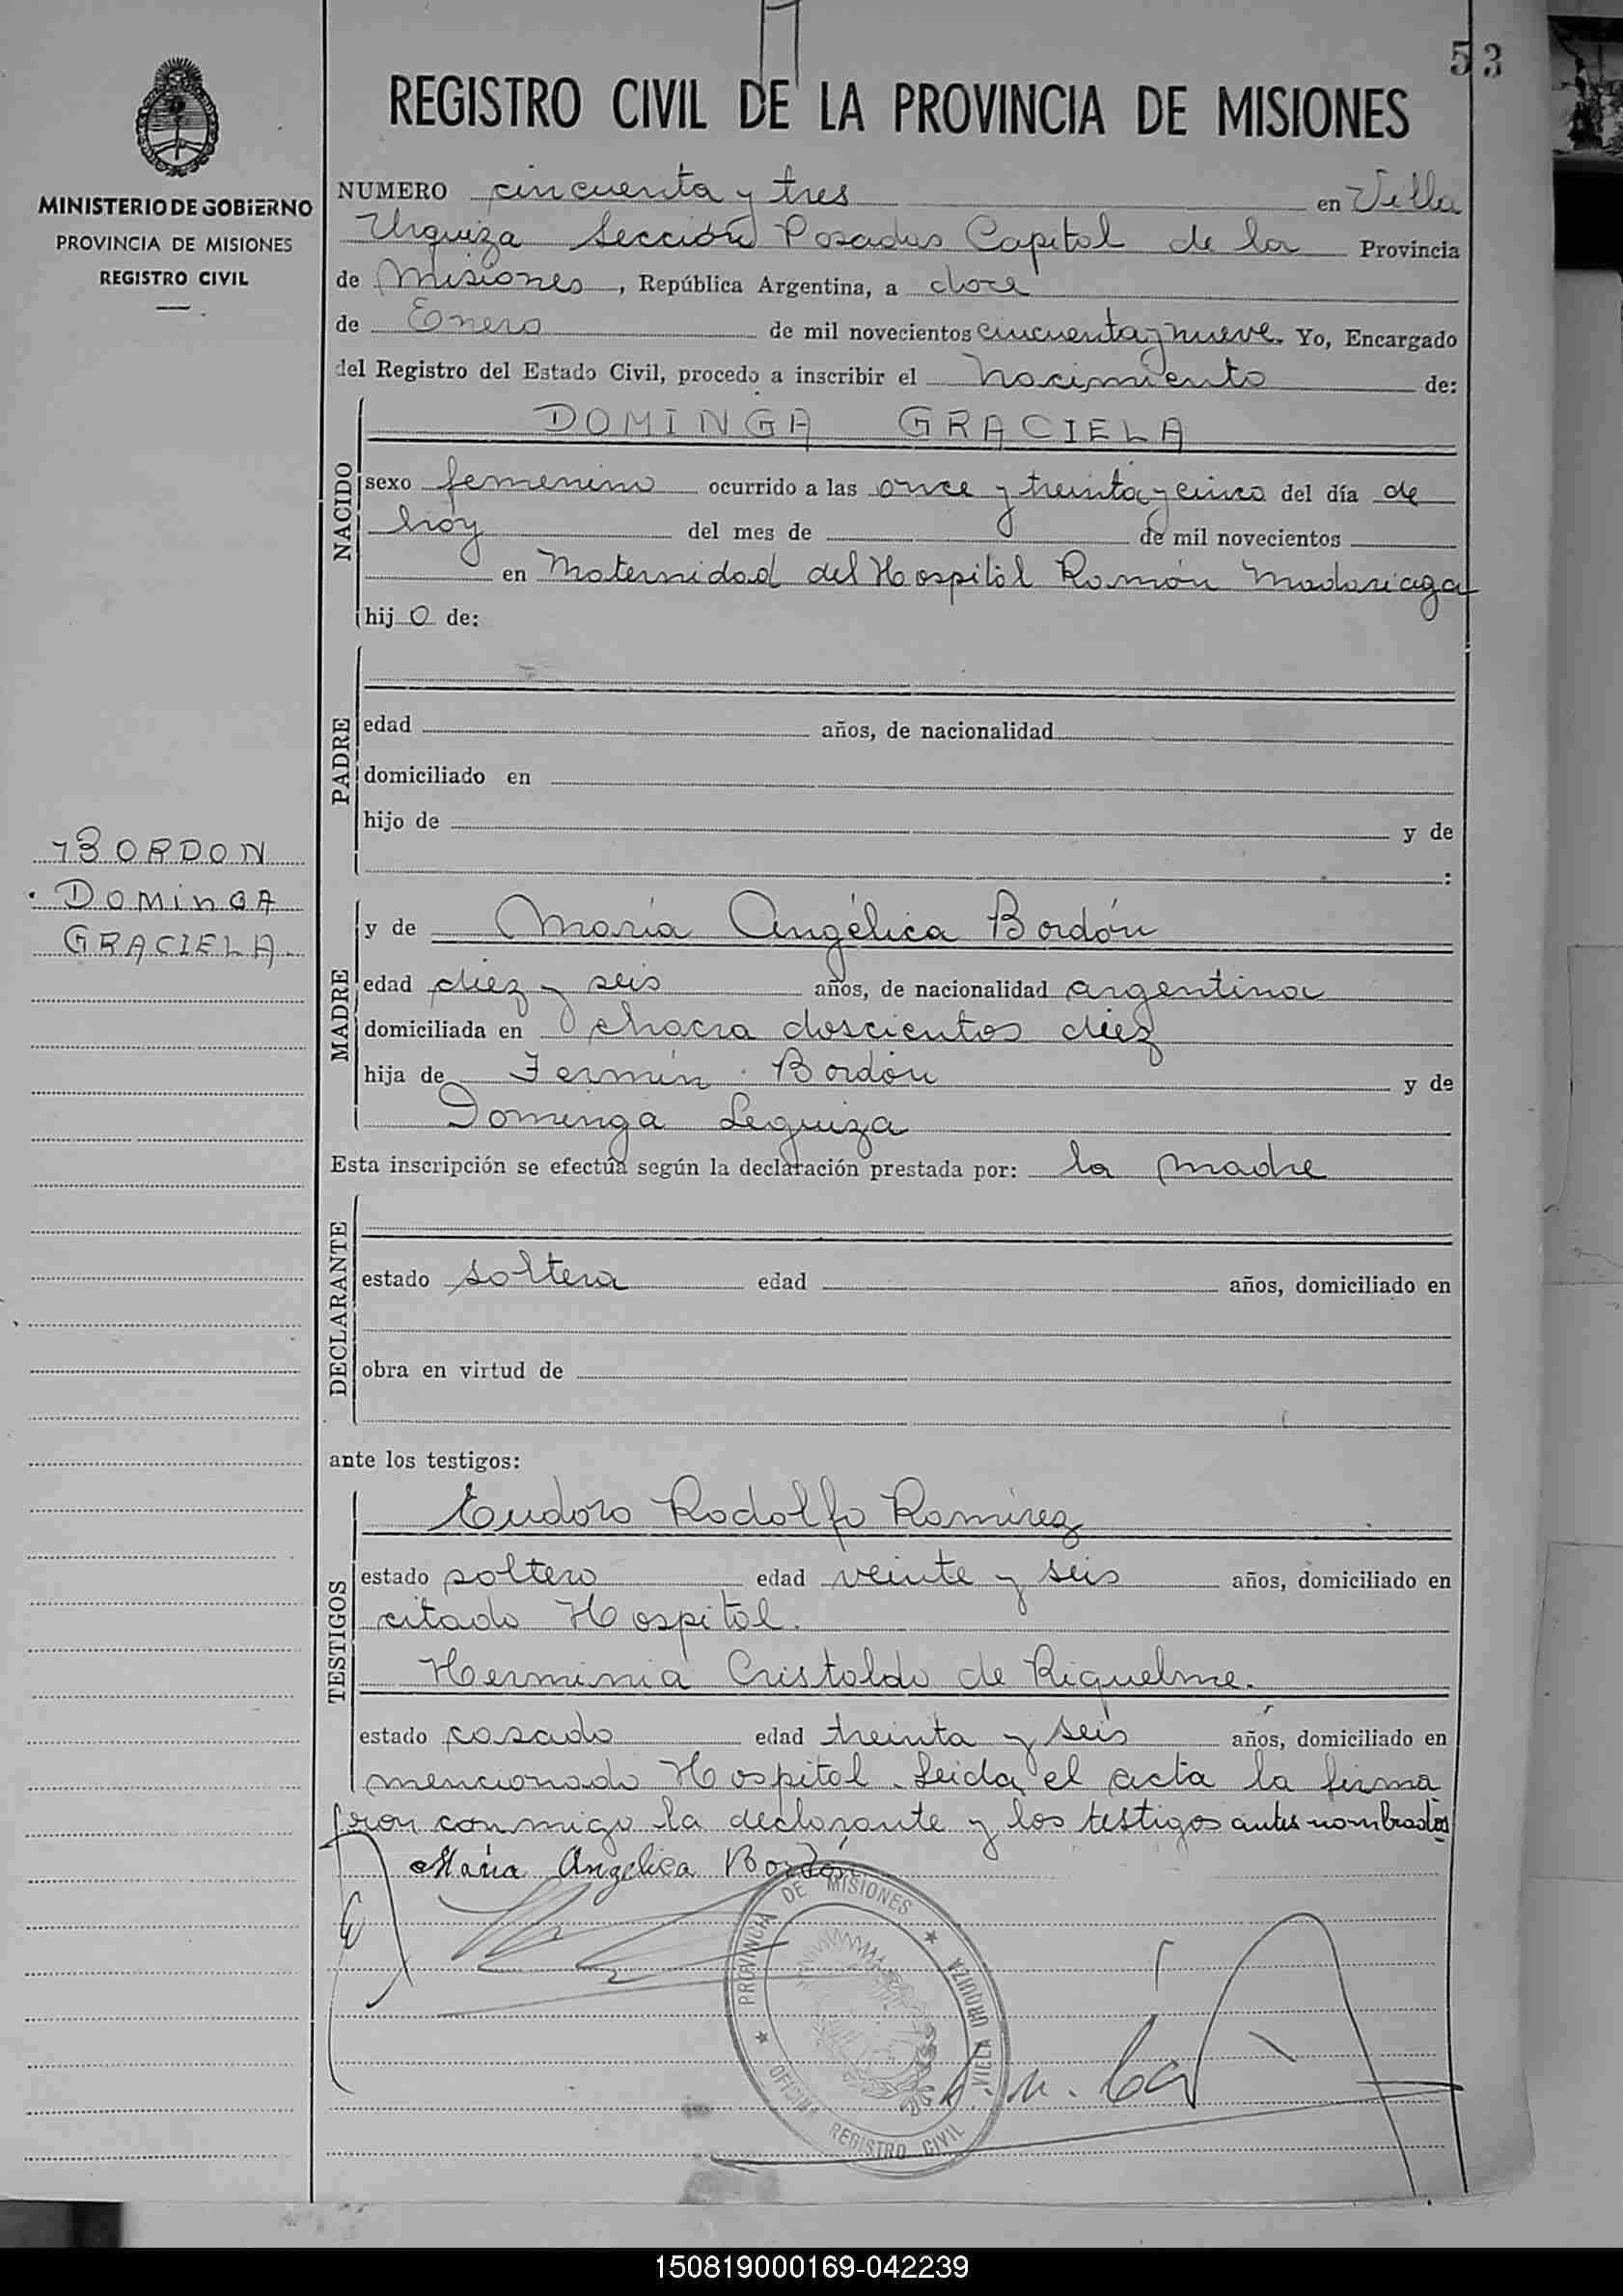 53
REGISTRO CIVIL DE LA PROVINCIA DE MISIONES
MINISTERIO DE GOBIERNO
PROVINCIA DE MISIONES
REGISTRO CIVIL
NUMERO cincuenta y tres en Villa
Urquiza Sección Posadas Capital de la Provincia
de Misiones, República Argentina, a doce
de Enero de mil novecientos cincuenta y nueve. Yo, Encargado
del Registro del Estado Civil, procedo a inscribir el nacimiento de:
NACIDO
DOMINGA GRACIELA
sexo femenino ocurrido a las once y treinta y cinco del día de
hoy del mes de de mil novecientos
en Maternidad del Hospital Ramón Madariaga
hij o de:
PADRE
edad años, de nacionalidad
domiciliado en
hijo de y de
:
BORDON
DOMINGA
GRACIELA
MADRE
y de María Angélica Bordón
edad diez y seis años, de nacionalidad argentina
domiciliada en chacra doscientos diez
hija de Fermín Bordón y de
Dominga Leguiza
Esta inscripción se efectúa según la declaración prestada por: la madre
DECLARANTE
estado soltera edad años, domiciliado en
obra en virtud de
ante los testigos:
TESTIGOS
Eudoro Rodolfo Ramírez
estado soltero edad veinte y seis años, domiciliado en
citado Hospital.
Herminia Cristaldo de Riquelme.
estado casado edad treinta y seis años, domiciliado en
mencionado Hospital. Leida el acta la firma
ron conmigo la declarante y los testigos antes nombrados
María Angélica Bordón
PROVINCIA DE MISIONES ★ VILLA URQUIZA
★ OFICINA REGISTRO CIVIL
150819000169-042239